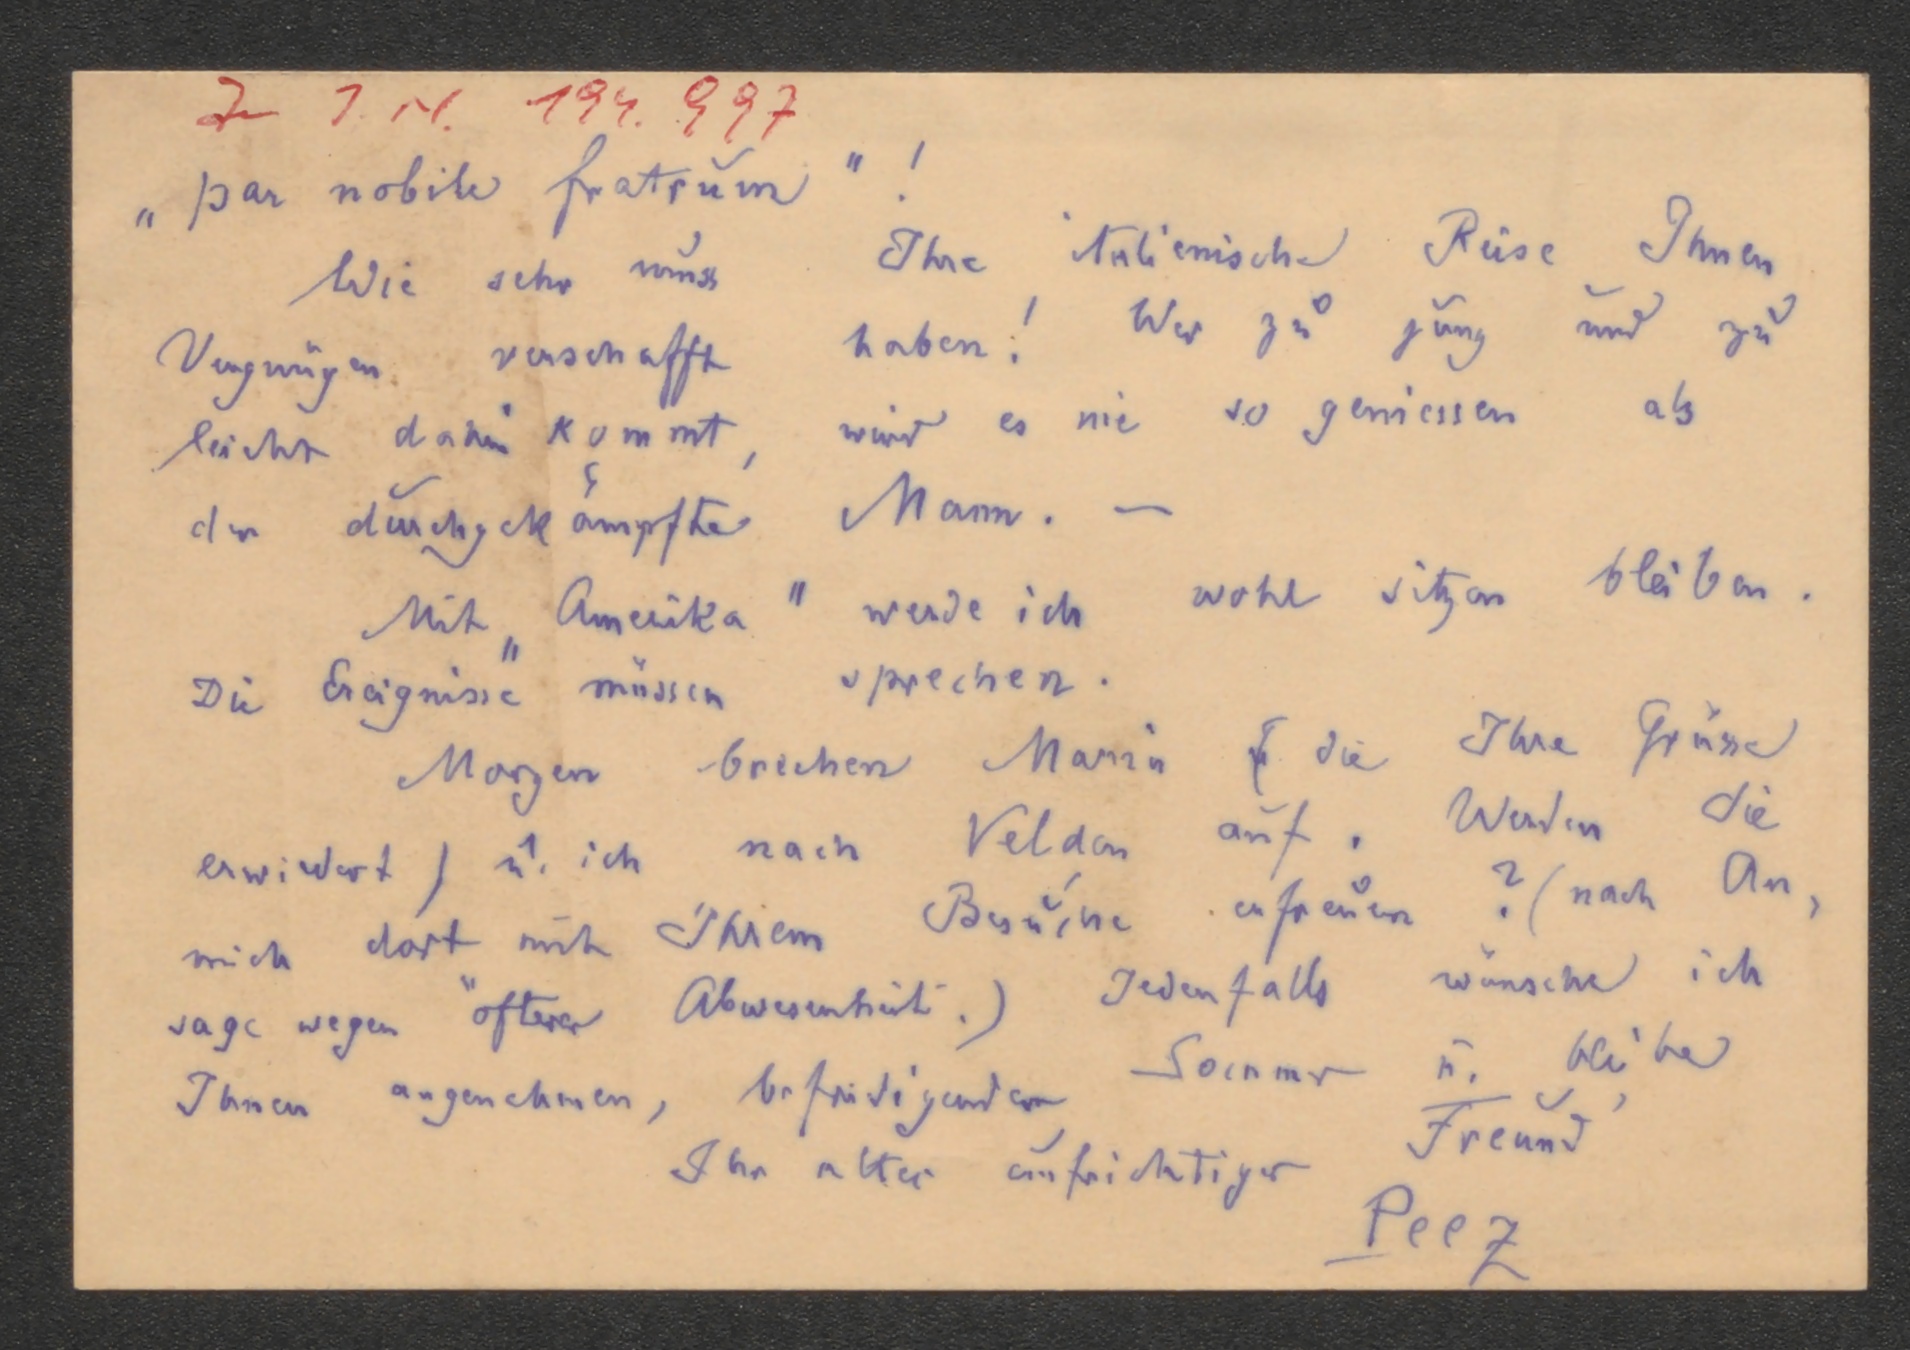 Zu I. N. 194.997
„par nobile fratrum“!
Wie sehr muss Ihre italienische Reise Ihnen
Vergnügen verschafft haben! Wer zu jung und zu
leicht dahin kommt, wird es nie so geniessen als
der durchgekämpfte Mann. —
Mit „Amerika“ werde ich wohl sitzen bleiben.
Die Ereignisse müssen sprechen.
Morgen brechen Maria (die Ihre Grüsse
erwidert) u. ich nach Velden auf. Werden Sie
mich dort mit Ihrem Besuche erfreuen? (nach An,
sage wegen öfterer Abwesenheit.) Jedenfalls wünsche ich
Ihnen angenehmen, befriedigenden Sommer u. bleibe
Ihr alter aufrichtiger Freund,
Peez